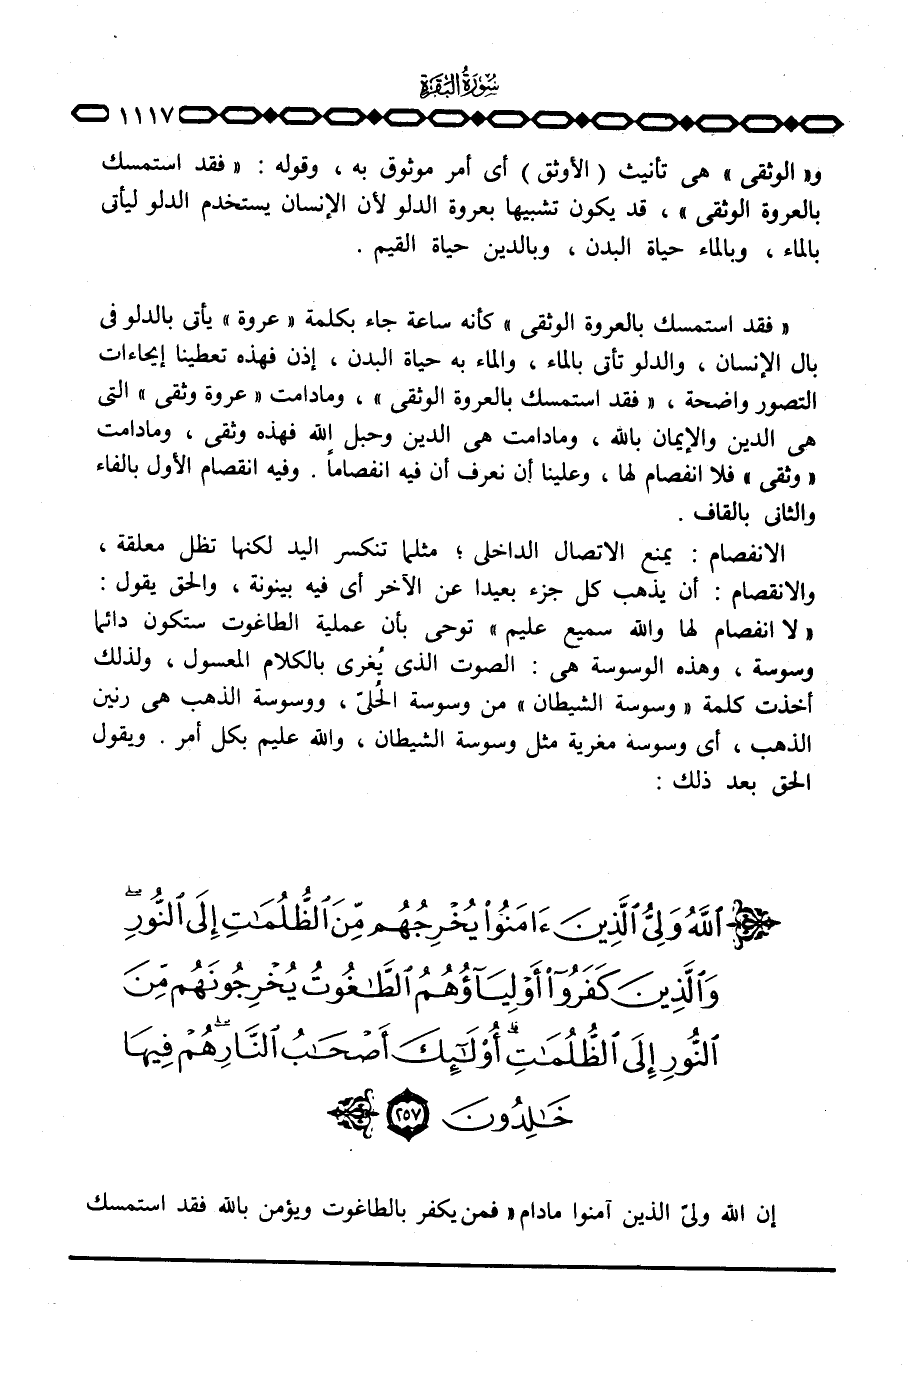 سُورَةُ البَقَرَةِ
١١١٧
و« الوثقى » هى تأنيث ( الأوثق ) أى أمر موثوق به ، وقوله : « فقد استمسك
بالعروة الوثقى » ، قد يكون تشبيها بعروة الدلو لأن الإنسان يستخدم الدلو ليأتى
بالماء ، وبالماء حياة البدن ، وبالدين حياة القيم .
« فقد استمسك بالعروة الوثقى » كأنه ساعة جاء بكلمة « عروة » يأتى بالدلو فى
بال الإنسان ، والدلو تأتى بالماء ، والماء به حياة البدن ، إذن فهذه تعطينا إيحاءات
التصور واضحة ، « فقد استمسك بالعروة الوثقى » ، ومادامت « عروة وثقى » التى
هى الدين والإيمان بالله ، ومادامت هى الدين وحبل الله فهذه وثقى ، ومادامت
« وثقى » فلا انفصام لها ، وعلينا أن نعرف أن فيه انفصاماً . وفيه انقصام الأول بالفاء
والثانى بالقاف .
الانفصام : يمنع الاتصال الداخلى ؛ مثلما تنكسر اليد لكنها تظل معلقة ،
والانقصام : أن يذهب كل جزء بعيدا عن الآخر أى فيه بينونة ، والحق يقول :
« لا انفصام لها والله سميع عليم » توحى بأن عملية الطاغوت ستكون دائما
وسوسة ، وهذه الوسوسة هى : الصوت الذى يُغرى بالكلام المعسول ، ولذلك
أخذت كلمة « وسوسة الشيطان » من وسوسة الحُلىّ ، ووسوسة الذهب هى رنين
الذهب ، أى وسوسة مغرية مثل وسوسة الشيطان ، والله عليم بكل أمر . ويقول
الحق بعد ذلك :
ٱللَّهُ وَلِىُّ ٱلَّذِينَ ءَامَنُوا۟ يُخْرِجُهُم مِّنَ ٱلظُّلُمَٰتِ إِلَى ٱلنُّورِ ۖ
وَٱلَّذِينَ كَفَرُوٓا۟ أَوْلِيَآؤُهُمُ ٱلطَّٰغُوتُ يُخْرِجُونَهُم مِّنَ
ٱلنُّورِ إِلَى ٱلظُّلُمَٰتِ ۗ أُو۟لَٰٓئِكَ أَصْحَٰبُ ٱلنَّارِ ۖ هُمْ فِيهَا
خَٰلِدُونَ ٢٥٧
إن الله ولىّ الذين آمنوا مادام « فمن يكفر بالطاغوت ويؤمن بالله فقد استمسك